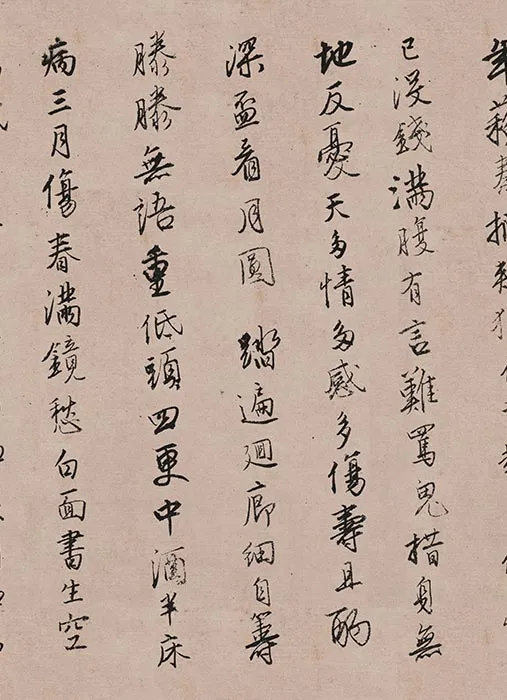 年蘇秦
已沒錢滿腹有言難罵鬼措身無
地反憂天多情多感多傷壽且酌
深盃看月圓 踏遍迴廊細自籌
滕滕無語重低頭四更中酒半床
病三月傷春滿鏡愁白面書生空